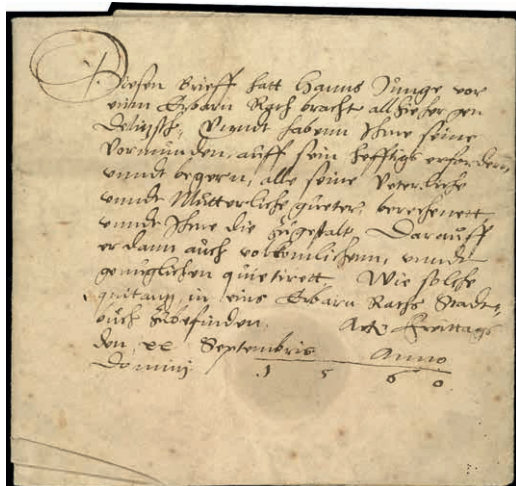 Diesen Brieff hatt Hanns Junge vor
einem Erbarn Rath bracht allhieher gen
Delitzsch, Vnndt habenn Ihme seine
Vormunden, auff sein hefftigs erfordern
vnndt begern, alle seine Veterliche
vnndt Mutterliche gueter, berechenett
vnndt Ihme die zugestalt, Darauff
er dann auch volkomlichenn, vnndt
genuglichen quietirett, Wie solche
quitantz, in eins Erbarn Raths Stadt-
buch Zubefinden. Freittags
den xx Septembris Anno
Domini 1 5 6 0